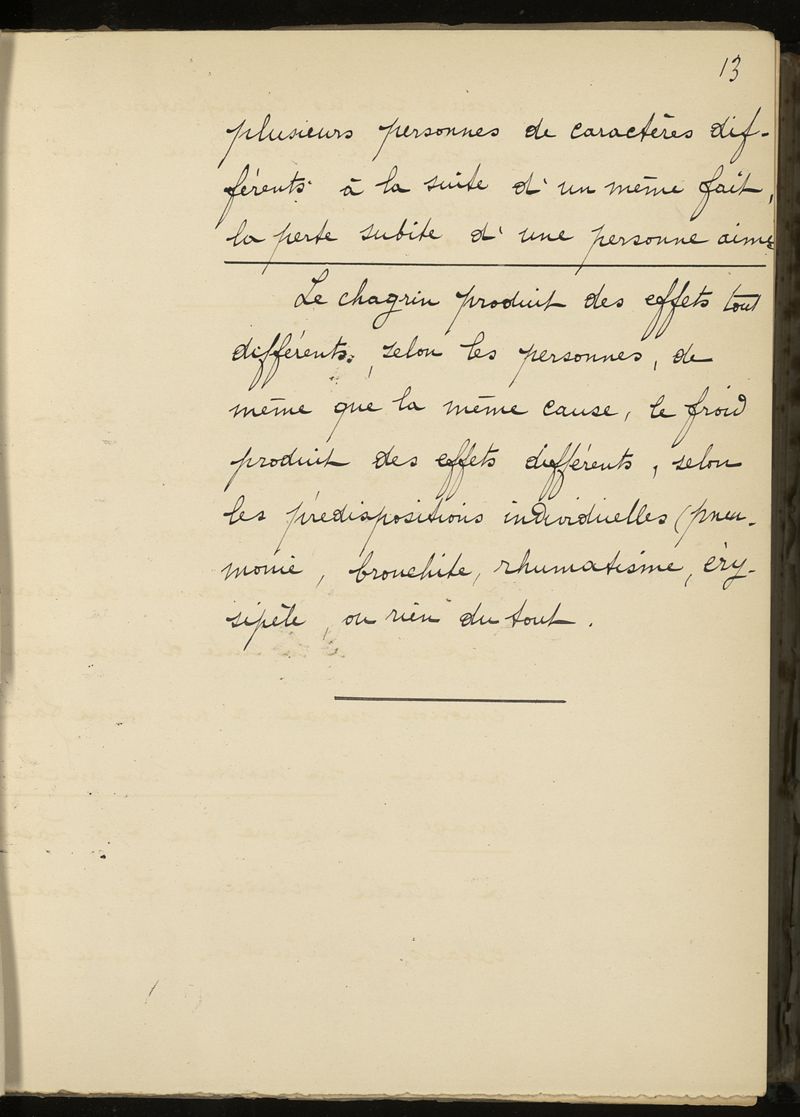 13
plusieurs personnes de caractères dif-
férents à la suite d'un même fait,
la perte subite d'une personne aimé
Le chagrin produit des effets tout
différents, selon les personnes, de
même que la même cause, le froid
produit des effets différents, selon
les prédispositions individuelles (pneu-
monie, bronchite, rhumatisme, éry-
sipèle, ou rien du tout.